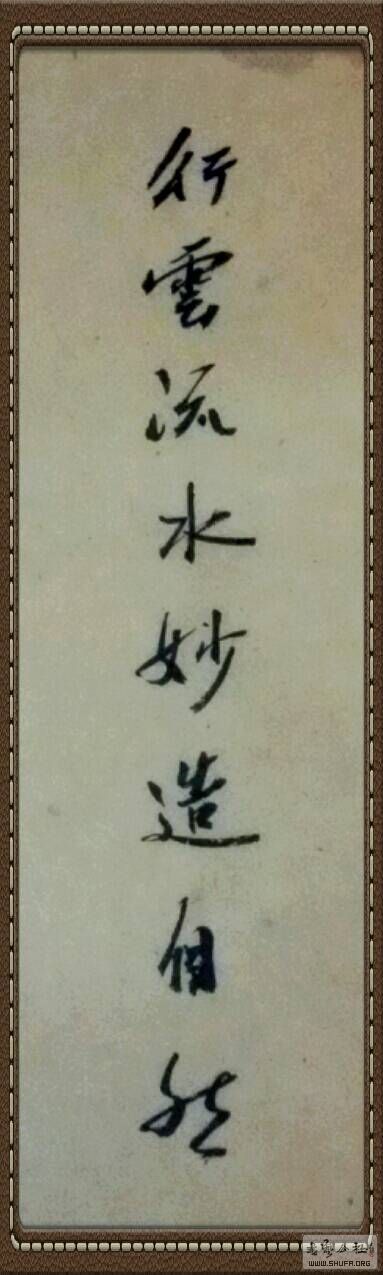 行雲流水妙造自然
WWW.SHUFA.ORG